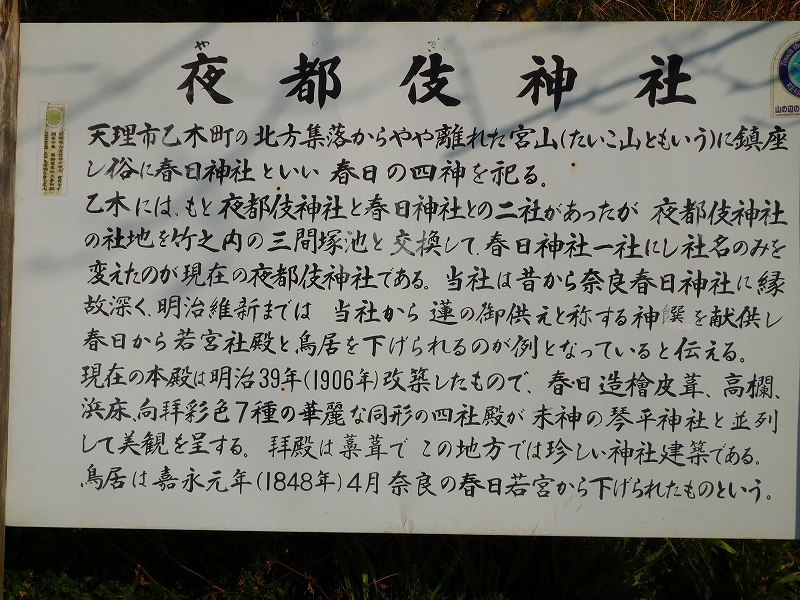 夜都伎神社
天理市乙木町の北方集落からやや離れた宮山(たいこ山ともいう)に鎮座
し俗に春日神社といい 春日の四神を祀る。
乙木には、もと夜都伎神社と春日神社との二社があったが 夜都伎神社
の社地を竹之内の三間塚池と交換して、春日神社一社にし社名のみを
変えたのが現在の夜都伎神社である。当社は昔から奈良春日神社に縁
故深く、明治維新までは 当社から蓮の御供えと称する神饌を献供し
春日から若宮社殿と、鳥居を下げられるのが例となっていると伝える。
現在の本殿は明治39年(1906年)改築したもので、春日造檜皮葺、高欄、
浜床、向拝彩色7種の華麗な同形の四社殿が末神の琴平神社と並列
して美観を呈する。拝殿は藁葺でこの地方では珍しい神社建築である。
鳥居は嘉永元年(1848年)4月奈良の春日若宮から下げられたものという。